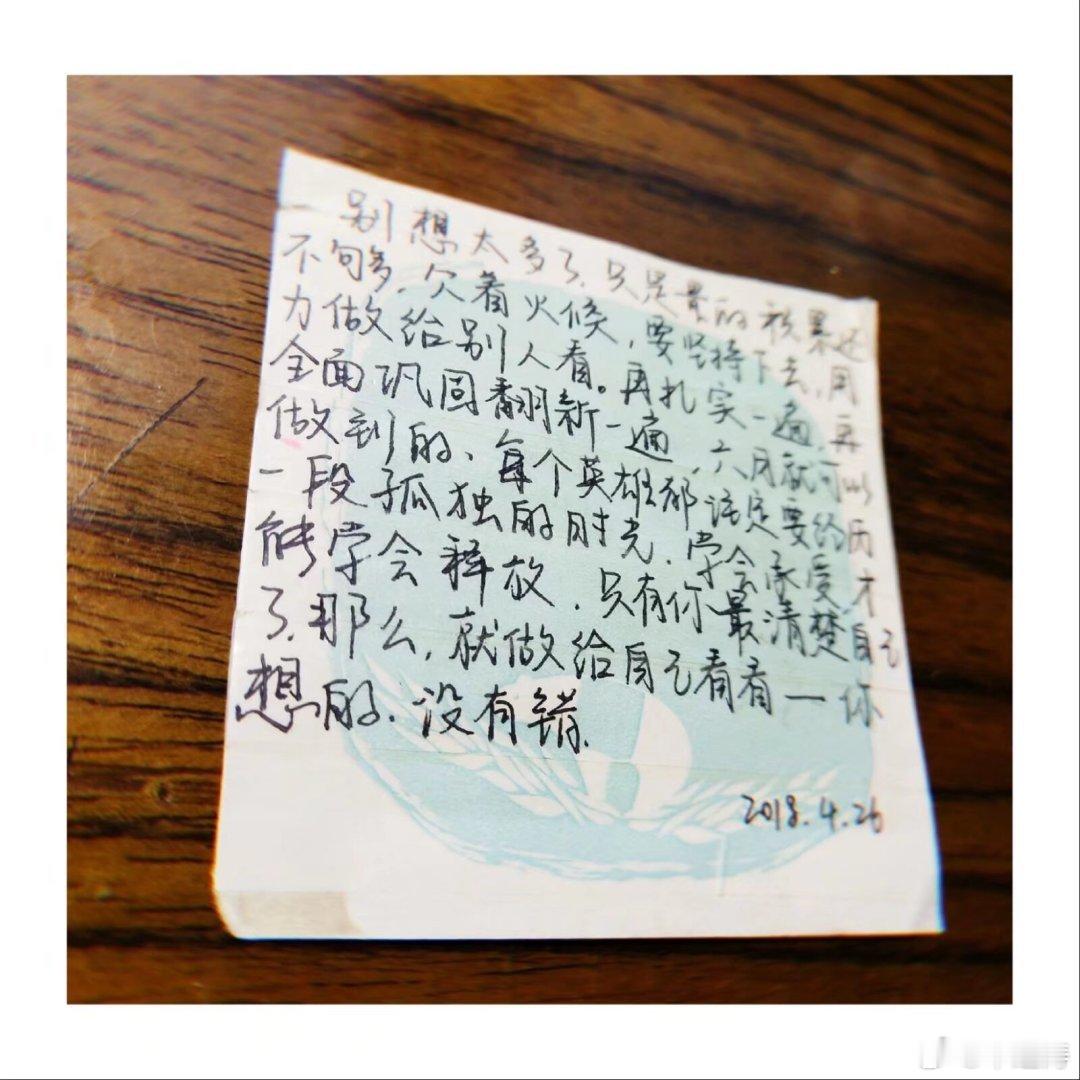 别想太多了.只是累的积累还
不够多,欠着火候,要坚持下去,用
力做给别人看。再扎实一遍,再
全面巩固翻新一遍,六月就可以
做到的、每个英雄都注定要经历
一段孤独的时光.学会承受,才
能学会释放.只有你最清楚自己
了.那么,就做给自己看看一你
想的.没有错.
2018.4.26